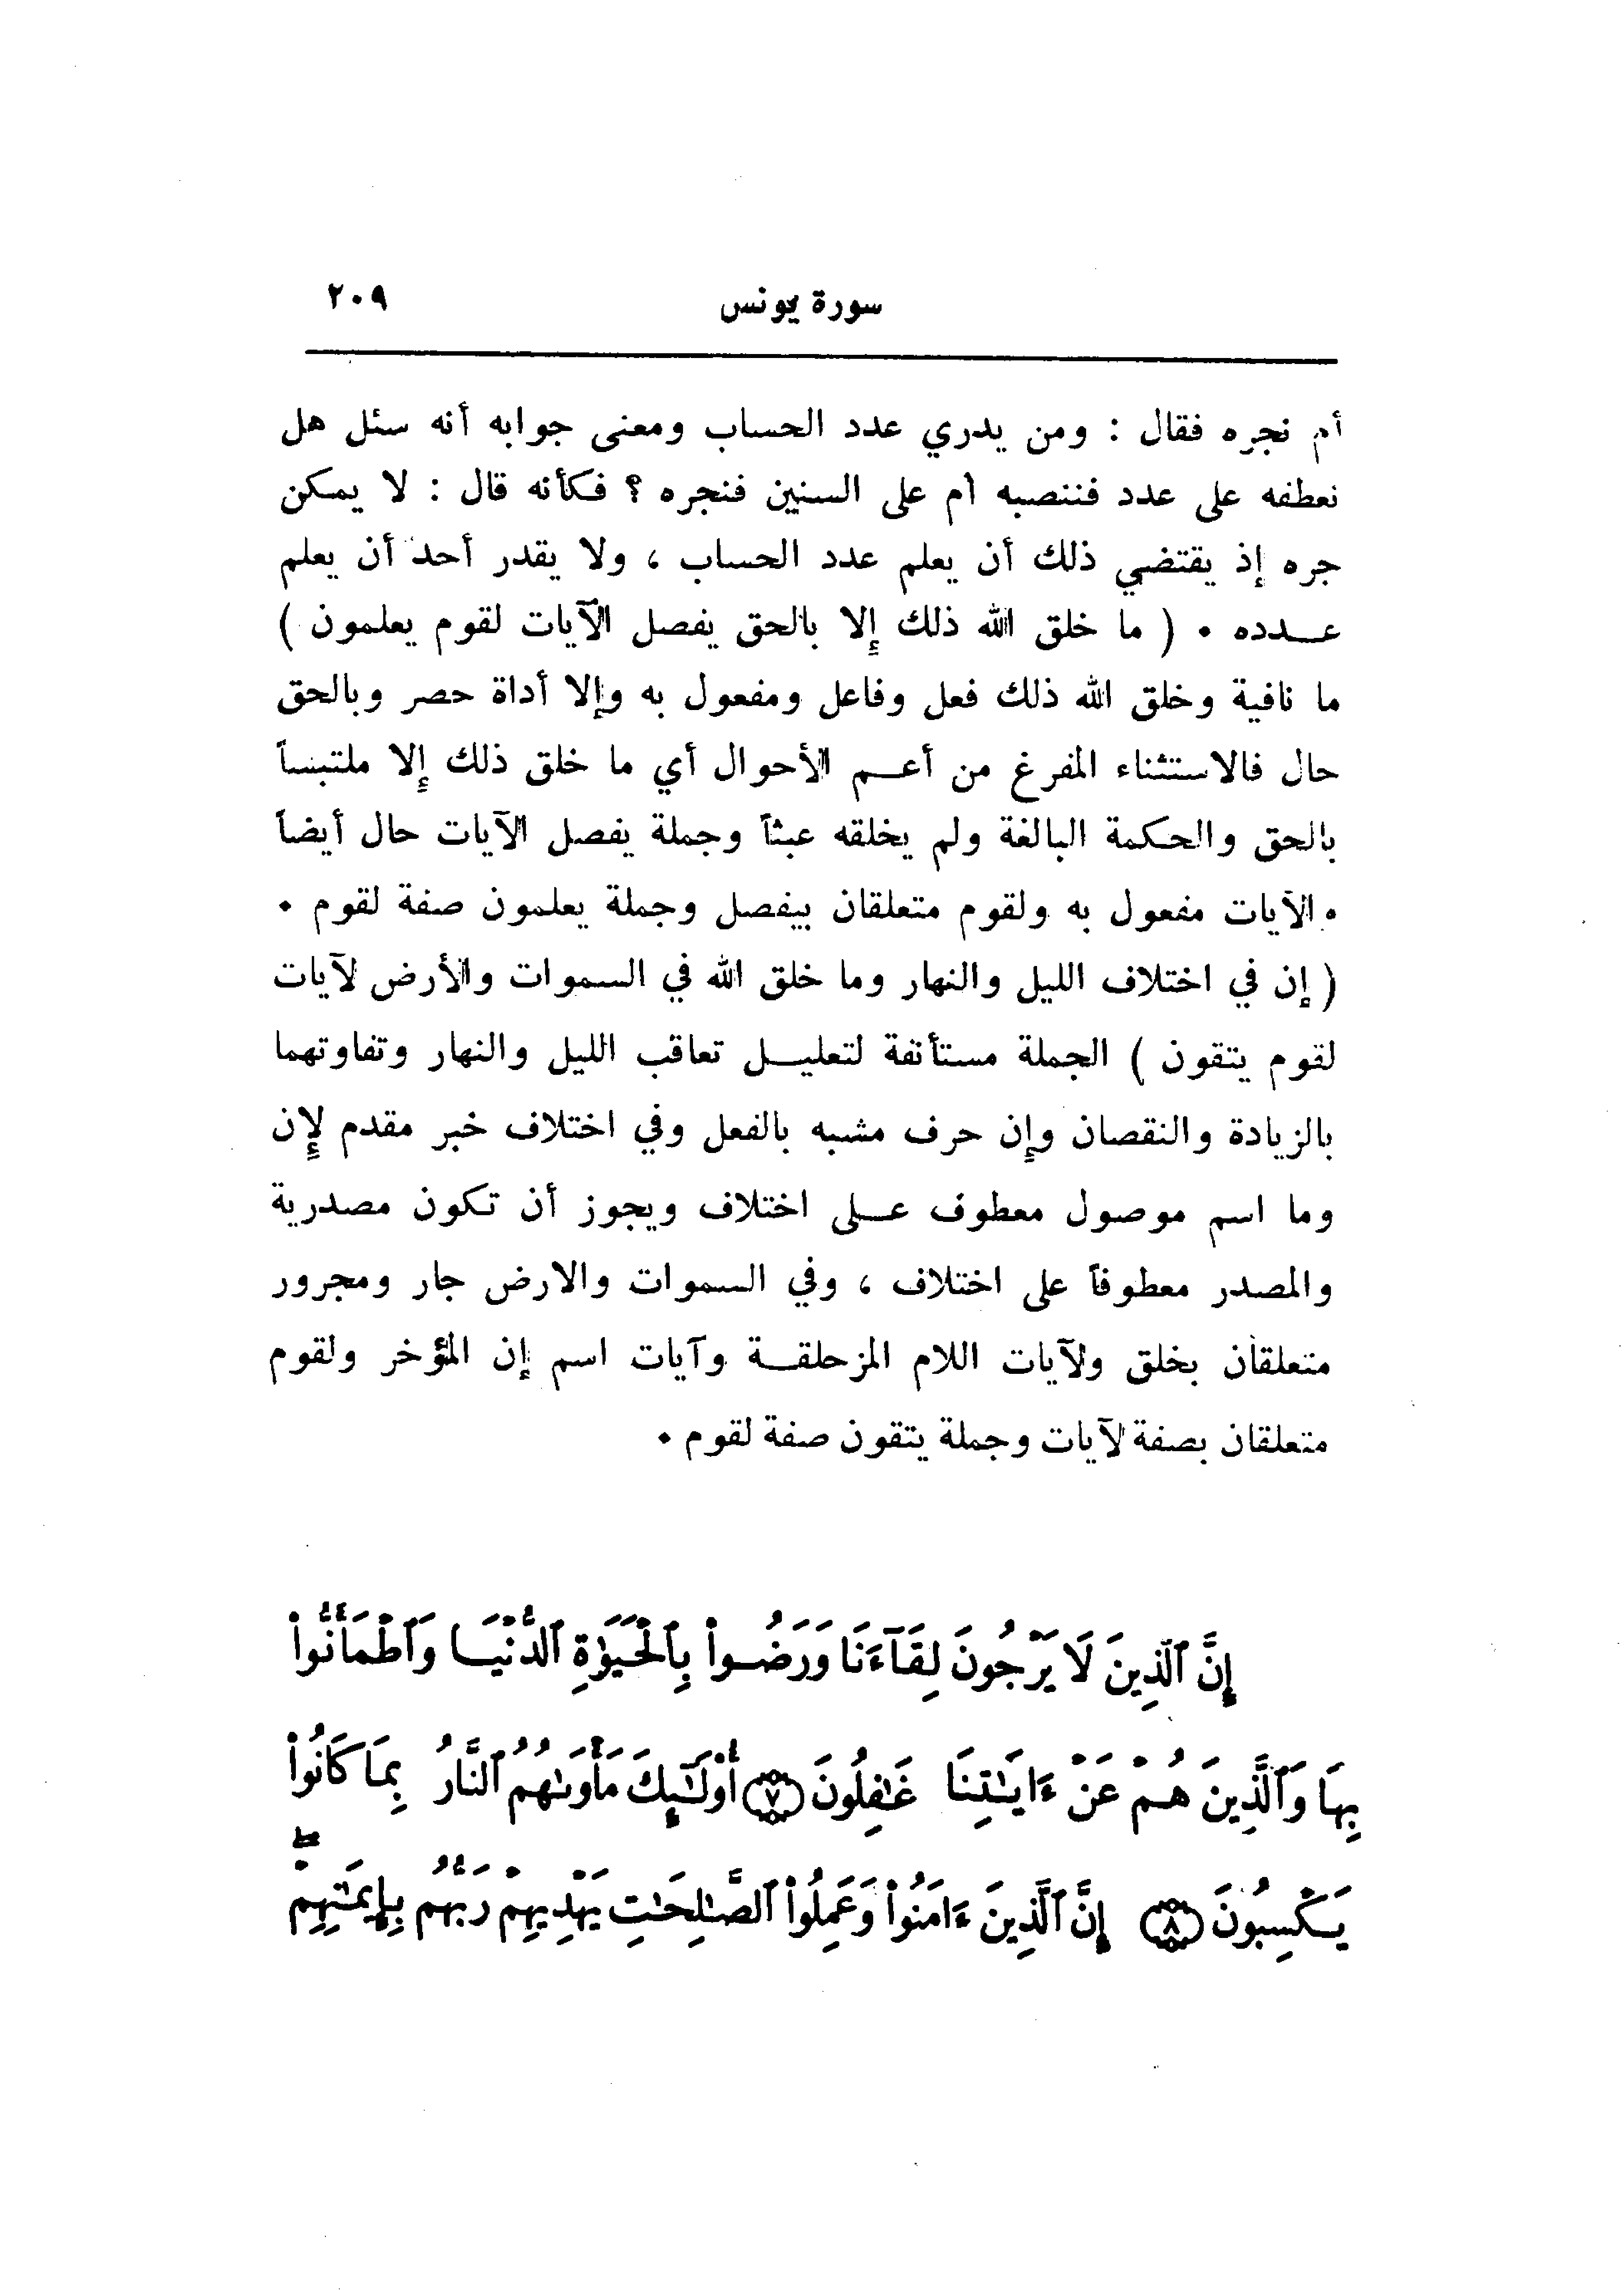 سورة يونس ٢٠٩
أم نجره فقال : ومن يدري عدد الحساب ومعنى جوابه أنه سئل هل
نعطفه على عدد فننصبه أم على السنين فنجره ؟ فكأنه قال : لا يمكن
جره إذ يقتضي ذلك أن يعلم عدد الحساب ، ولا يقدر أحد أن يعلم
عـــدده • ( ما خلق الله ذلك إلا بالحق يفصل الآيات لقوم يعلمون )
ما نافية وخلق الله ذلك فعل وفاعل ومفعول به وإلا أداة حصر وبالحق
حال فالاستثناء المفرغ من أعـــم الأحوال أي ما خلق ذلك إلا ملتبساً
بالحق والحكمة البالغة ولم يخلقه عبثاً وجملة يفصل الآيات حال أيضاً
• الآيات مفعول به ولقوم متعلقان بيفصل وجملة يعلمون صفة لقوم •
( إن في اختلاف الليل والنهار وما خلق الله في السموات والأرض لآيات
لقوم يتقون ) الجملة مستأنفة لتعليـــل تعاقب الليل والنهار وتفاوتهما
بالزيادة والنقصان وإن حرف مشبه بالفعل وفي اختلاف خبر مقدم لإن
وما اسم موصول معطوف عـــلى اختلاف ويجوز أن تكون مصدرية
والمصدر معطوفاً على اختلاف ، وفي السموات والارض جار ومجرور
متعلقان بخلق ولآيات اللام المزحلقـــة وآيات اسم إن المؤخر ولقوم
متعلقان بصفة لآيات وجملة يتقون صفة لقوم •
إِنَّ ٱلَّذِينَ لَا يَرْجُونَ لِقَآءَنَا وَرَضُوا۟ بِٱلْحَيَوٰةِ ٱلدُّنْيَا وَٱطْمَأَنُّوا۟
بِهَا وَٱلَّذِينَ هُمْ عَنْ ءَايَٰتِنَا غَٰفِلُونَ ﴿٧﴾ أُو۟لَٰٓئِكَ مَأْوَىٰهُمُ ٱلنَّارُ بِمَا كَانُوا۟
يَكْسِبُونَ ﴿٨﴾ إِنَّ ٱلَّذِينَ ءَامَنُوا۟ وَعَمِلُوا۟ ٱلصَّٰلِحَٰتِ يَهْدِيهِمْ رَبُّهُم بِإِيمَٰنِهِمْ ۖ